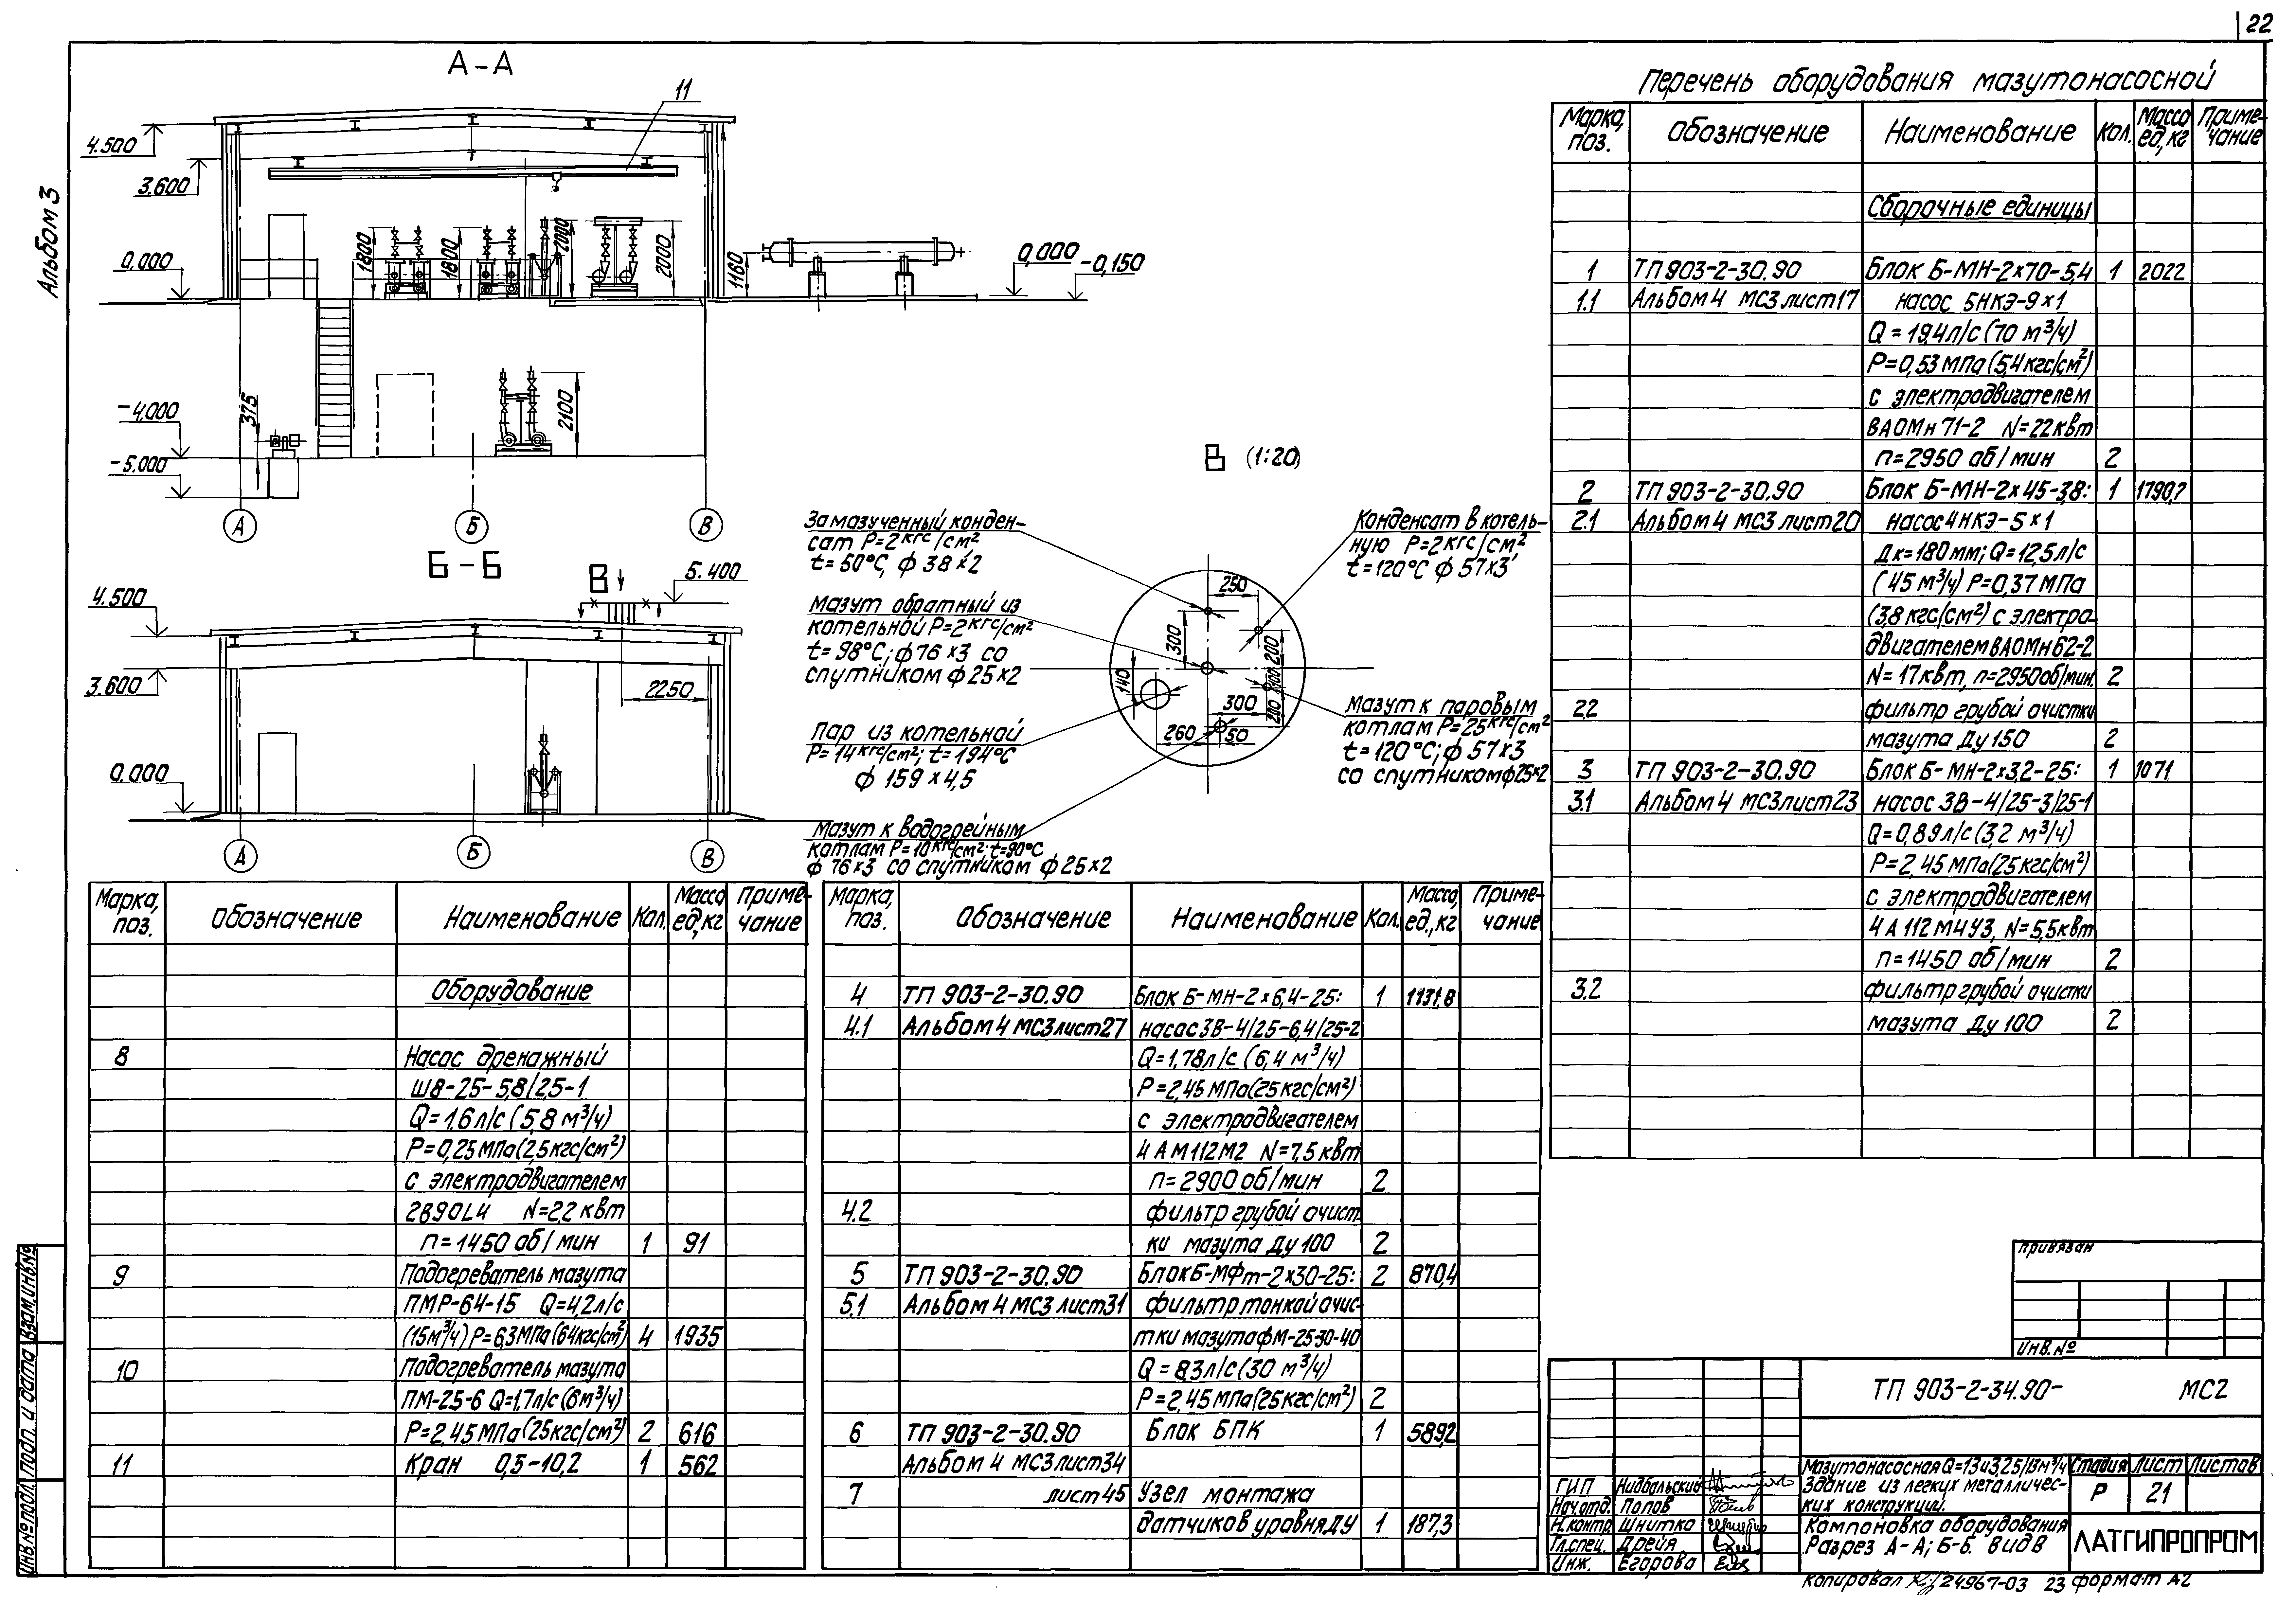 22
Альбом 3
А-А
11
4.500
3.600
0.000
1800
1800
2000
2000
1160
0,000
-0,150
-4,000
375
-5.000
2100
А
Б
В
Б-Б
В
5.400
4.500
3.600
2250
0.000
А
Б
В
В (1:20)
Замазученный конден-
сат Р=2кгс/см²
t=50°С, ф 38×2
Мазут обратный из
котельной Р=2кгс/см²
t=98°С; ф76×3 со
спутником ф25×2
Пар из котельной
Р=14кгс/см²; t=194°С
ф 159×4,5
Мазут к водогрейным
котлам Р=10кгс/см²; t=90°С
ф 76×3 со спутником ф25×2
Конденсат в котель-
ную Р=2кгс/см²
t=120°С ф 57×3
Мазут к паровым
котлам Р=25кгс/см²
t=120°С; ф 57×3
со спутником ф25×2
250
300
200
100
200
140
300
260
50
Перечень оборудования мазутонасосной
Марка, поз. Обозначение Наименование Кол. Масса ед, кг Приме-чание
Сборочные единицы
1 ТП 903-2-30.90 Блок Б-МН-2×70-5,4 1 2022
1.1 Альбом 4 МС3 лист 17 насос 5НКЭ-9×1
Q=19,4л/с (70 м³/ч)
Р=0,53 МПа (5,4кгс/см²)
с электродвигателем
ВАОМн 71-2 N=22квт
n=2950 об/мин 2
2 ТП 903-2-30.90 Блок Б-МН-2×45-3,8: 1 1790,7
2.1 Альбом 4 МС3 лист 20 насос 4НКЭ-5×1
Дк=180мм; Q=12,5л/с
(45 м³/ч) Р=0,37 МПа
(3,8 кгс/см²) с электро-
двигателем ВАОМн 62-2
N=17квт, n=2950об/мин. 2
2.2 фильтр грубой очистки
мазута Ду 150 2
3 ТП 903-2-30.90 Блок Б-МН-2×3,2-25: 1 1071
3.1 Альбом 4 МС3 лист 23 насос 3В-4/25-3/25-1
Q=0,89л/с (3,2 м³/ч)
Р=2,45 МПа (25кгс/см²)
с электродвигателем
4А 112 М4У3, N=5,5квт
n=1450 об/мин 2
3.2 фильтр грубой очистки
мазута Ду 100 2
Марка, поз. Обозначение Наименование Кол. Масса ед, кг Приме-чание
Оборудование
8 Насос дренажный
Ш8-25-5,8/2,5-1
Q=1,6л/с (5,8 м³/ч)
Р=0,25 МПа (2,5кгс/см²)
с электродвигателем
2В90L4 N=2,2 квт
n=1450 об/мин 1 91
9 Подогреватель мазута
ПМР-64-15 Q=4,2л/с
(15м³/ч) Р=6,3МПа (64кгс/см²) 4 1935
10 Подогреватель мазута
ПМ-25-6 Q=1,7л/с (6м³/ч)
Р=2,45 МПа (25кгс/см²) 2 616
11 Кран 0,5-10,2 1 562
Марка, поз. Обозначение Наименование Кол. Масса, ед., кг Приме-чание
4 ТП 903-2-30.90 Блок Б-МН-2×6,4-25: 1 1131,8
4.1 Альбом 4 МС3 лист 27 насос 3В-4/25-6,4/25-2
Q=1,78л/с (6,4 м³/ч)
Р=2,45 МПа (25кгс/см²)
с электродвигателем
4АМ112М2 N=7,5 квт
n=2900 об/мин 2
4.2 фильтр грубой очист-
ки мазута Ду 100 2
5 ТП 903-2-30.90 Блок Б-МФт-2×30-25: 2 870,4
5.1 Альбом 4 МС3 лист 31 фильтр тонкой очис-
тки мазута ФМ-25-30-40
Q=8,3л/с (30 м³/ч)
Р=2,45 МПа (25кгс/см²) 2
6 ТП 903-2-30.90 Блок БПК 1 589,2
Альбом 4 МС3 лист 34
7 лист 45 Узел монтажа
датчиков уровня ДУ 1 187,3
Привязан
Инв. №
ТП 903-2-34.90- МС2
Мазутонасосная Q=13и3,25/13м³/ч
Здание из легких металличес-
ких конструкций.
Стадия Лист Листов
Р 21
Компоновка оборудования
Разрез А-А; Б-Б. Вид В
ЛАТГИПРОПРОМ
ГИП Нидбальский
Нач.отд. Попов
Н.контр. Шнитко
Гл.спец. Дрейя
Инж. Егорова
Копировал 24967-03 23 формат А2
Инв.№ подл. Подп. и дата Взам.инв.№